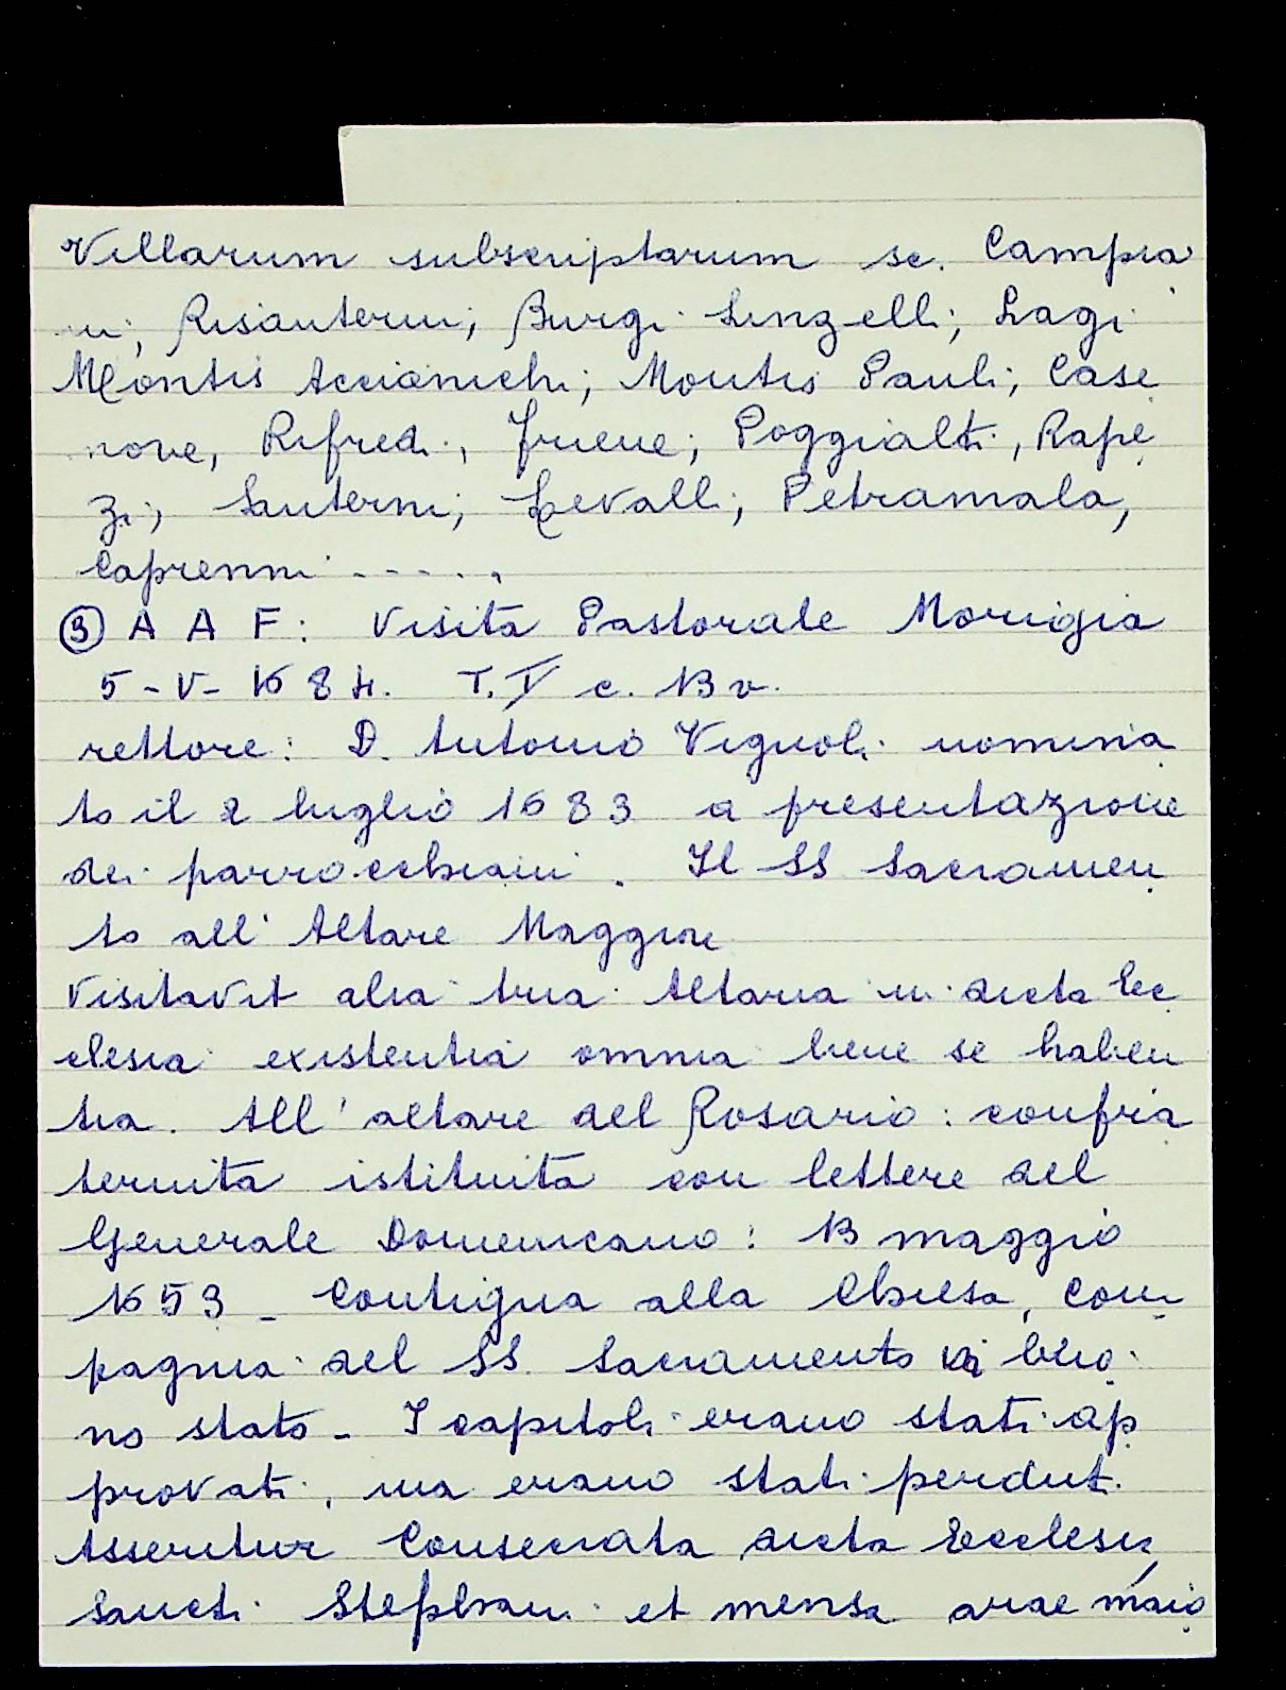 Villarum subscriptarum sc. Campia
ni; Risanterni; Burgi Linzelli; Lagi
Montis Accianichi; Montis Pauli; Case
nove, Rifredi, Friene; Poggialti, Rape
zi; Santerni; Levalli; Petramala,
Caprenni .....
③ A A F: Visita Pastorale Morigia
5-V-1684. T. V c. 13 v.
rettore: D. Antonio Vignoli nomina
to il 2 luglio 1683 a presentazione
dei parrocchiani. Il SS Sacramen
to all'Altare Maggiore
Visitavit alia tria Altaria in dicta Ec
clesia existentia omnia bene se haben
tia. All'altare del Rosario: confra
ternita istituita con lettere del
Generale Domenicano: 13 maggio
1653 - Contigua alla Chiesa, Com
pagnia del SS. Sacramento in buo
no stato - I capitoli erano stati ap
provati, ma erano stati perduti.
Asseritur Consecrata dicta Ecclesia,
Sancti Stephani et mensa arae maio